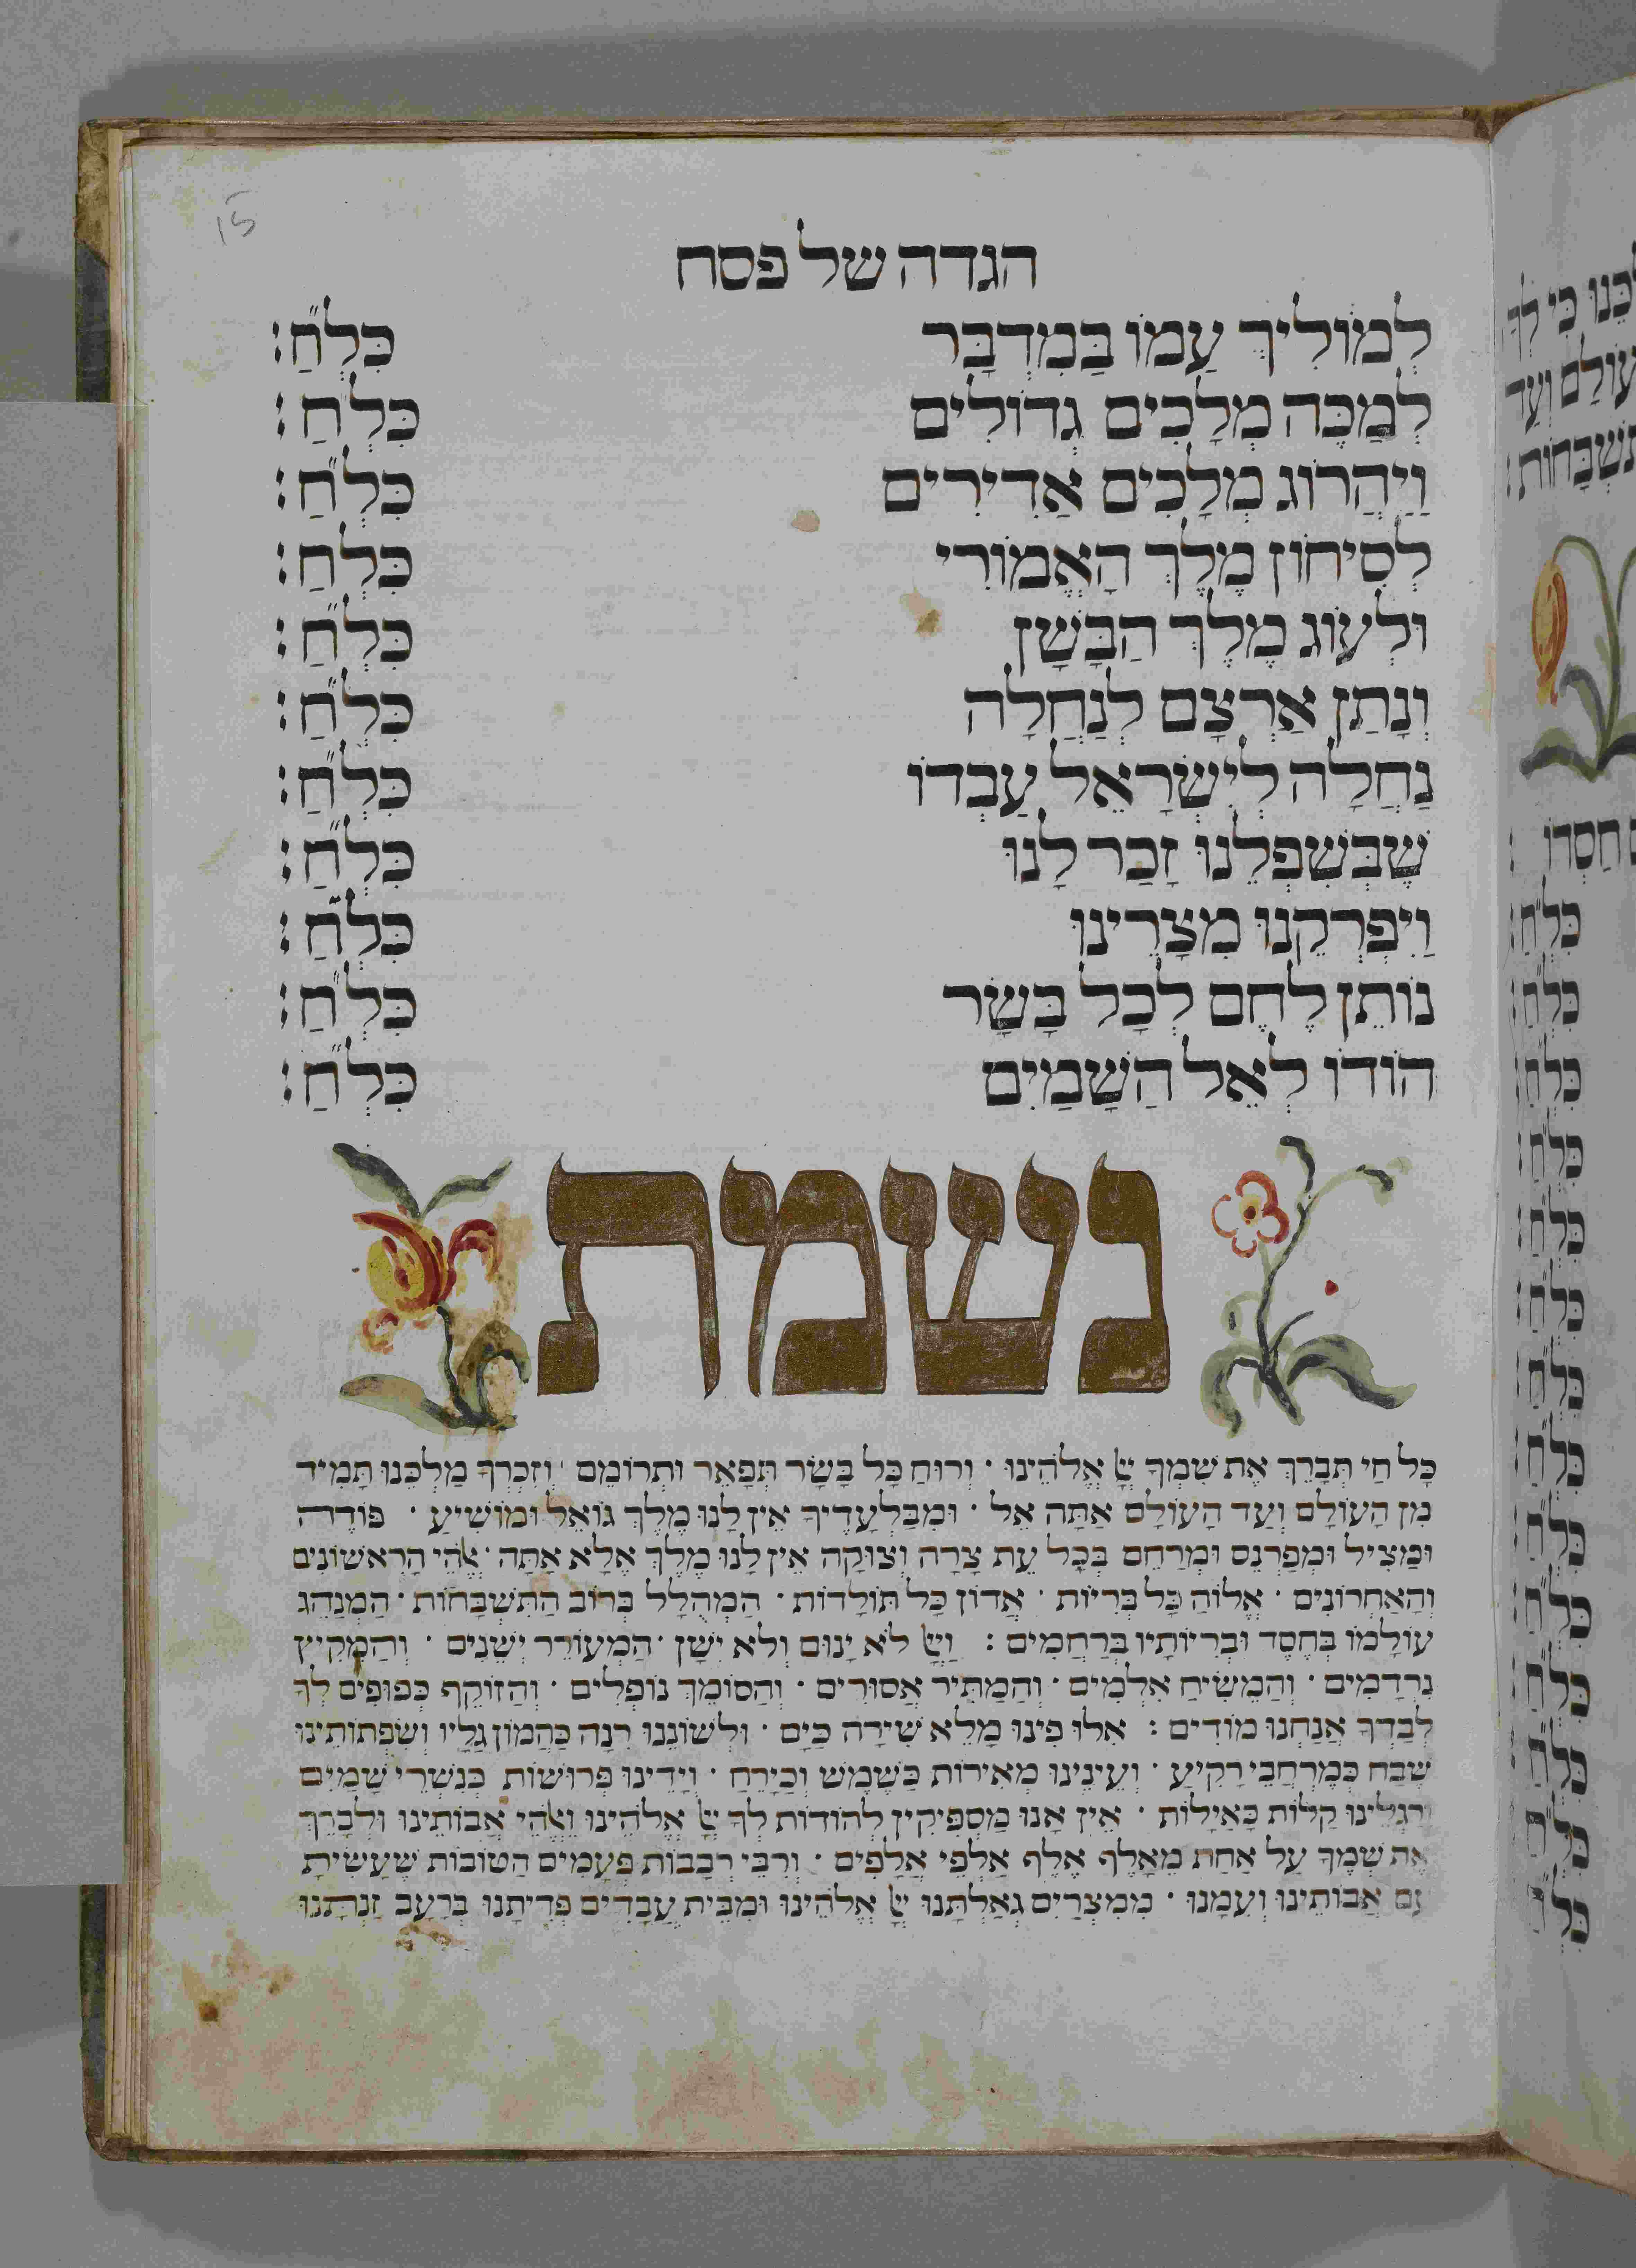 15
הגדה של פסח
לְמוֹלִיךְ עַמוֹ בַּמִדְבָּר כִּלְ״חַ:
לְמַכֶּה מְלָכִים גְדוֹלִים כִּלְ״חַ:
וַיַהֲרוֹג מְלָכִים אַדִירִים כִּלְ״חַ:
לְסִיחוֹן מֶלֶךְ הָאֱמוֹרִי כִּלְ״חַ:
וּלְעוֹג מֶלֶךְ הַבָּשָׁן כִּלְ״חַ:
וְנָתַן אַרְצָם לְנַחֲלָה כִּלְ״חַ:
נַחֲלָה לְיִשְׂרָאֵל עַבְדוֹ כִּלְ״חַ:
שֶׁבְּשִׁפְלֵנוּ זָכַר לָנוּ כִּלְ״חַ:
וַיִפְרְקֵנוּ מִצָרֵינוּ כִּלְ״חַ:
נוֹתֵן לֶחֶם לְכָל בָּשָׂר כִּלְ״חַ:
הוֹדוּ לְאֵל הַשָׁמַיִם כִּלְ״חַ:
נשמת
כָּל חַי תְּבָרֵךְ אֶת שִׁמְךָ יְיָ אֱלֹהֵינוּ · וְרוּחַ כָּל בָּשָׂר תְּפָאֵר וּתְרוֹמֵם וְזִכְרְךָ מַלְכֵּנוּ תָּמִיד
מִן הָעוֹלָם וְעַד הָעוֹלָם אַתָּה אֵל · וּמִבַּלְעָדֶיךָ אֵין לָנוּ מֶלֶךְ גוֹאֵל וּמוֹשִׁיעַ · פּוֹדֶה
וּמַצִיל וּמְפַרְנֵס וּמְרַחֵם בְּכָל עֵת צָרָה וְצוּקָה אֵין לָנוּ מֶלֶךְ אֶלָא אַתָּה · אֱלֹהֵי הָרִאשׁוֹנִים
וְהָאַחְרוֹנִים · אֱלוֹהַ כָּל בְּרִיוֹת · אֲדוֹן כָּל תּוֹלָדוֹת · הַמְהֻלָל בְּרוֹב הַתִּשְׁבָּחוֹת · הַמְנַהֵג
עוֹלָמוֹ בְּחֶסֶד וּבְרִיוֹתָיו בְּרַחֲמִים : וַיְיָ לֹא יָנוּם וְלֹא יִשָׁן · הַמְעוֹרֵר יְשֵׁנִים · וְהַמֵקִיץ
נִרְדָמִים · וְהַמֵשִׂיחַ אִלְמִים · וְהַמַתִּיר אֲסוּרִים · וְהַסוֹמֵךְ נוֹפְלִים · וְהַזוֹקֵף כְּפוּפִים לְךָ
לְבַדְךָ אֲנַחְנוּ מוֹדִים : אִלוּ פִינוּ מָלֵא שִׁירָה כַיָם · וּלְשׁוֹנֵנוּ רִנָה כַּהֲמוֹן גַלָיו וְשִׂפְתוֹתֵינוּ
שֶׁבַח כְּמֶרְחֲבֵי רָקִיעַ · וְעֵינֵינוּ מְאִירוֹת כַּשֶׁמֶשׁ וְכַיָרֵחַ · וְיָדֵינוּ פְּרוּשׂוֹת כְּנִשְׁרֵי שָׁמַיִם
וְרַגְלֵינוּ קַלוֹת כָּאַיָלוֹת · אֵין אָנוּ מַסְפִּיקִין לְהוֹדוֹת לְךָ יְיָ אֱלֹהֵינוּ וֵאלֹהֵי אֲבוֹתֵינוּ וּלְבָרֵךְ
אֶת שְׁמֶךָ עַל אַחַת מֵאָלֶף אֶלֶף אַלְפֵי אֲלָפִים · וְרִבֵּי רְבָבוֹת פְּעָמִים הַטוֹבוֹת שֶׁעָשִׂיתָ
עִם אֲבוֹתֵינוּ וְעִמָנוּ · מִמִצְרַיִם גְאַלְתָּנוּ יְיָ אֱלֹהֵינוּ וּמִבֵּית עֲבָדִים פְּדִיתָנוּ בְּרָעָב זַנְתָּנוּ